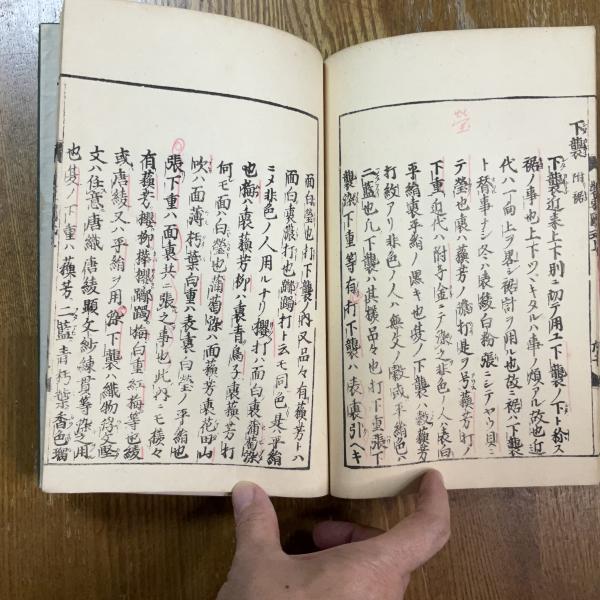 下襲 附裾
下襲近来上下別ニ切テ用ユ下襲ノ下ト称ス
裾ノ事也上下ツヽキタルハ事ノ煩アル故也近
代ハ一向上ヲ畧シ裾計ヲ用ル也故ニ裾ハ下襲
ト
事ナシ冬ハ表綾白粉張ニシテヤウ目ニ
テ瑩也裏ハ蘓芳ノ濃打是ヲ号蘓芳打ノ
下重近代ハ附子金ニテ染之非色ノ人ハ表白
裏平絹ノ黒キ也
夏ノ下襲ハ縠蘓芳
打紋アリ非色ノ人ハ無文ノ縠或平絹色ハ
二藍也凡下襲ハ其様品々也
打下重張下
襲染下重等有打下襲ハ表裏引ヘキ
瑩
面白裏濃打也打下襲ノ内又品々有蘓芳打トハ
面白裏濃打也躑躅打ト云モ同色
裏平絹
ニメ非色ノ人用ルナリ櫻打ハ面白裏葡萄染
也梅ハ表蘓芳柳ハ裏青
裏蘓芳打
何モ面ハ白瑩也葡萄染ハ面蘓芳裏花田山
吹ハ面薄朽葉白重ハ表裏白瑩ノ平絹也
張下重ハ面裏共ニ張之事也此内ニモ様々
有蘓芳櫻柳樺櫻躑躅梅白重紅梅等也綾
或唐綾又ハ平絹ヲ用染下襲ハ織物
文
文ハ任意唐織唐綾顕文紗練貫等染之用
也
夏ノ下重ハ蘓芳二藍青朽葉香色瑠